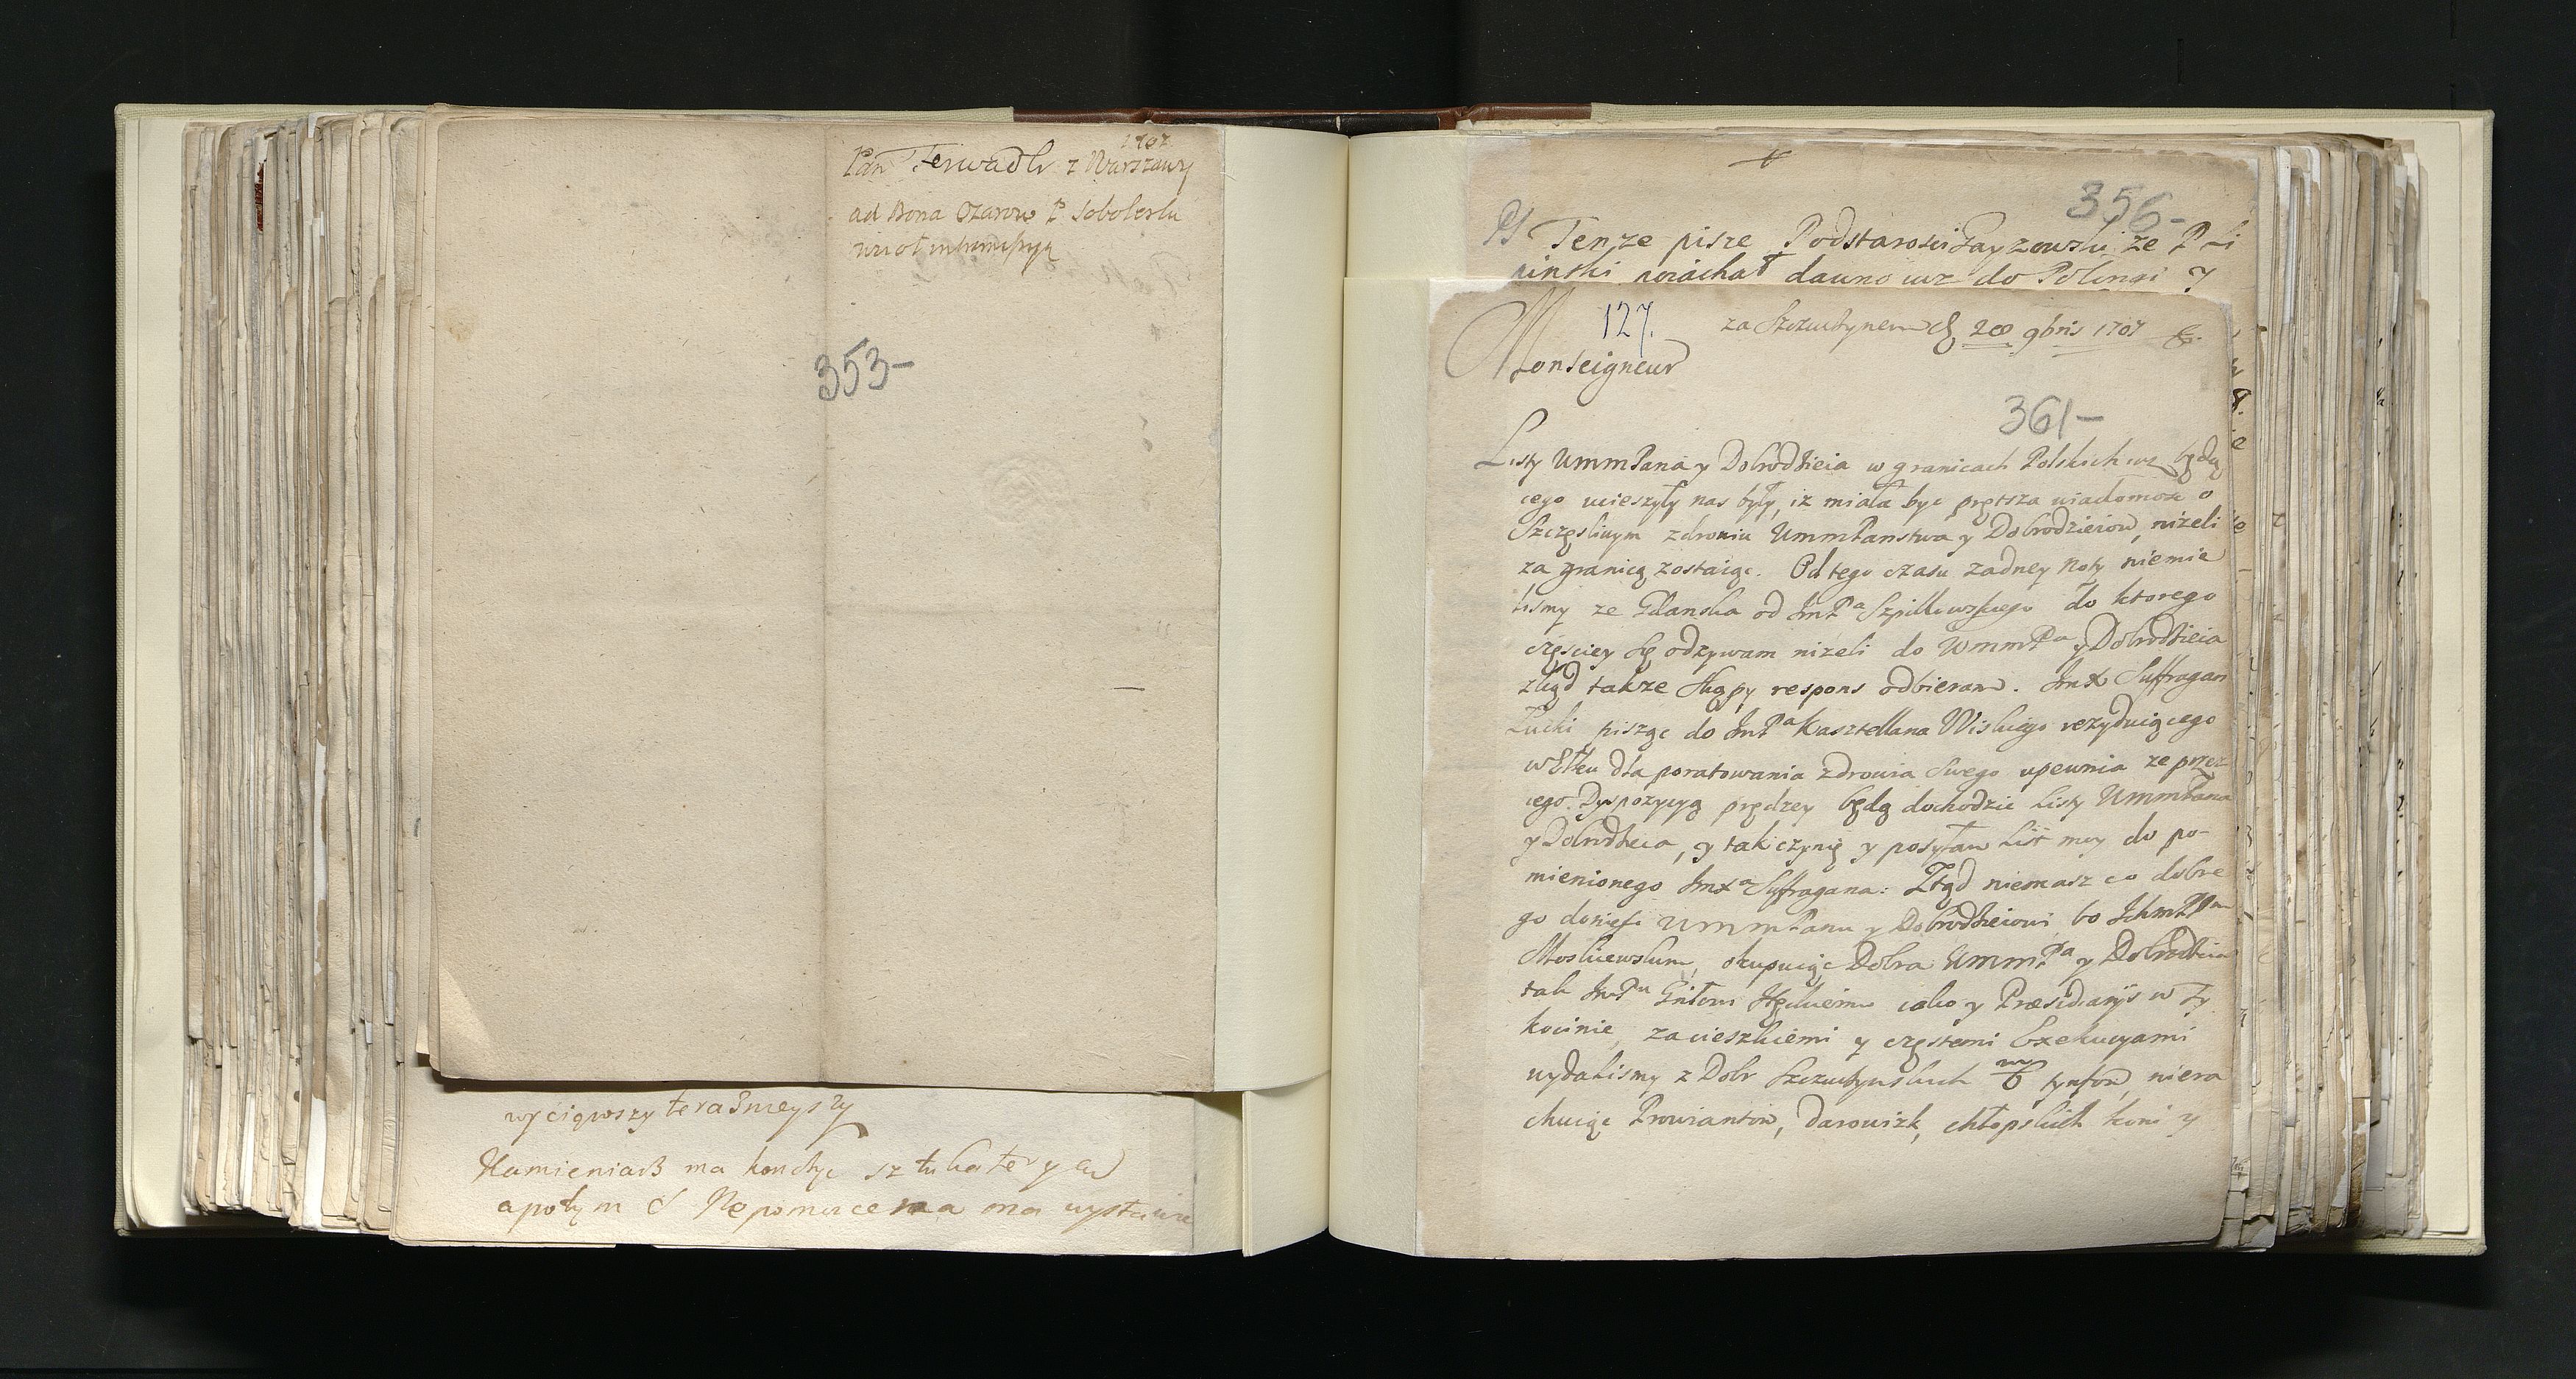 1707
Pan Ferwadli z Warszawy
ad Bona Ozarow P Soboleski
wziol intromissyą
353-
wyciąwszy terasneyszy
Kamieniarz ma konczyc sztukaterya
apotym S Nepomucena ma wystawic
356-
PS Tenze pisze Podstarosci ze P Li
pinski poiachał dawno iuz do Połongi y
127.
za Szczuczynem d 28 9bris 1707
Monseigneur
361-
Listy UmmPana y Dobrodzieia w granicach Polskich iuz będą
cego ucieszyły nas były, iz miała byc prętsza wiadomosc o
Szczęsliwym zdrowiu UmmPanstwa y Dobrodzieiow, nizeli
za granicą zostaiąc. Od tego czasu zadney Noty niemie
lismy ze Gdanska od JmPa Szpilkowskiego do ktorego
częsciey się odzywam nizeli do WmmPa y Dobrodzieia
zkąd takze skąpy respons odbieram. JmX Suffragan
Łucki pisząc do JmPa Kasztellana Wiskiego rezyduiącego
w Ełku dla poratowania zdrowia swego upewnia ze przez
iego Dyspozycyą prędzey będą dochodzic Listy UmmPana
y Dobrodzieia, y tak czynię y posyłam List moy do po-
mienionego JmXa Suffragana: Ztąd niemasz co dobre
go doniesc UmmPanu y Dobrodzieiowi, bo
Moskiewskim, okupuiąc Dobra UmmPa y Dobrodzieia
tak JmPu iako y Præsidiariis w Ty
kocinie, za cieszkiemi y częstemi Exekucyami
wydalismy z Dobr Szczuczynskich m/6 tynfow, niera
chuiąc Prowiantow, Darowizk, chłopskich koni y